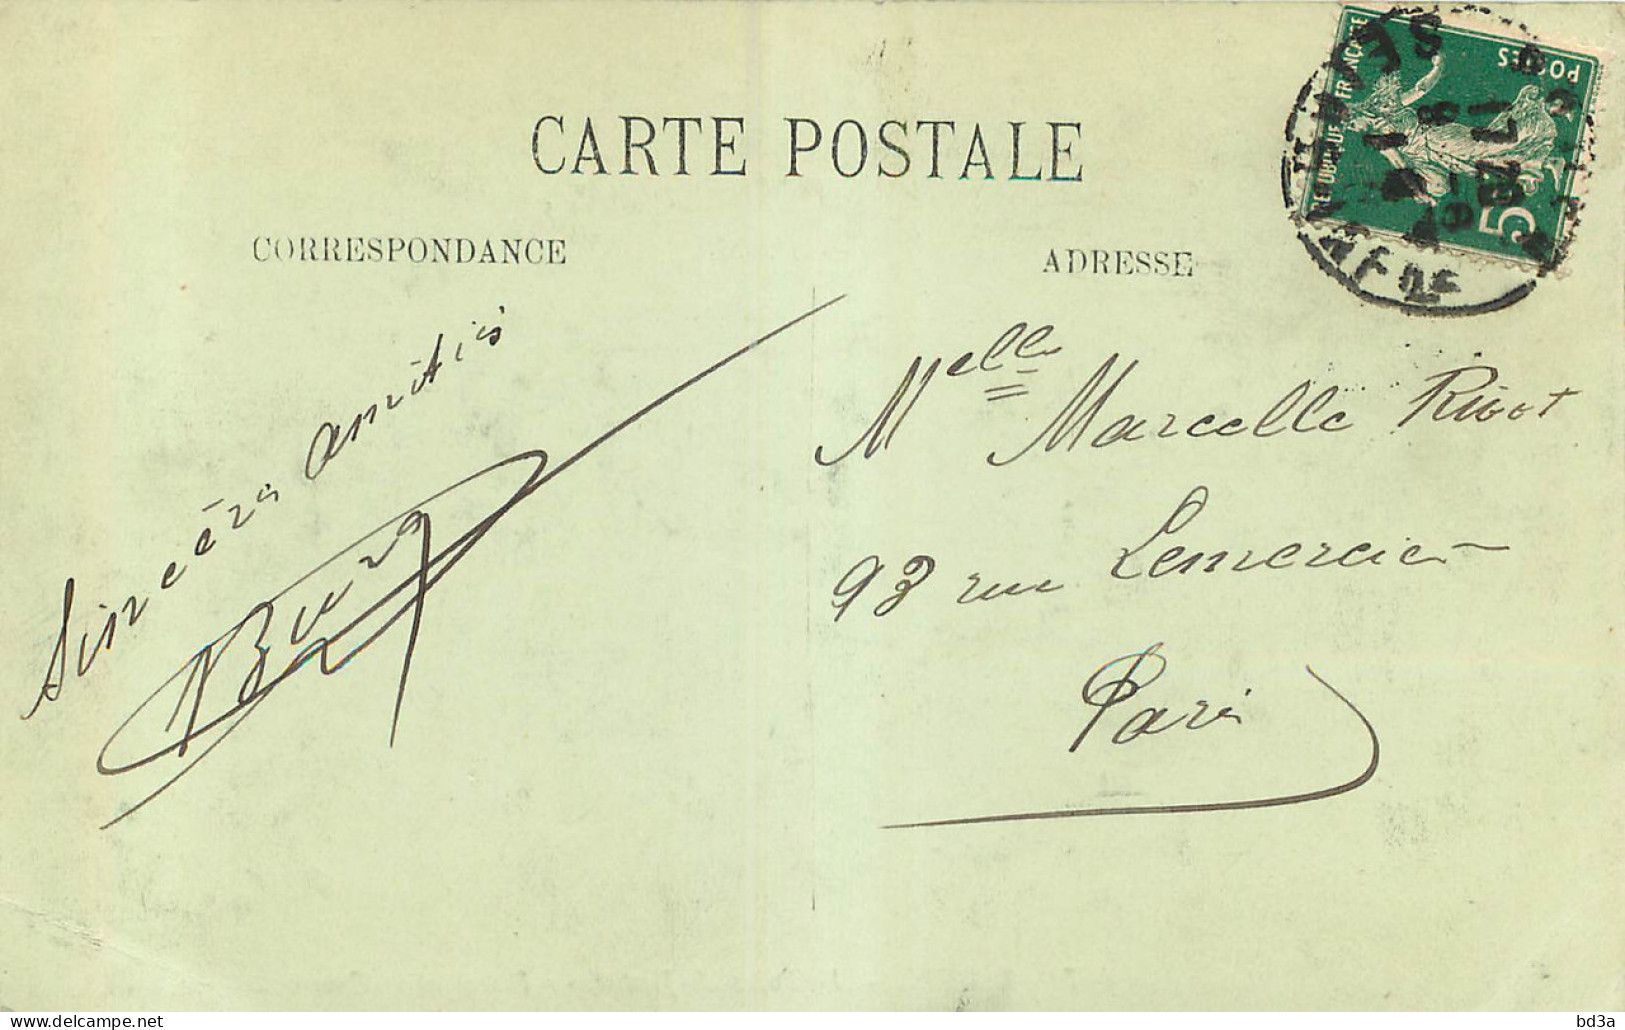 CARTE POSTALE
CORRESPONDANCE
ADRESSE
Sincères amitiés
Melle Marcelle Rivot
93 rue Lemercier
Paris
REPUBLIQUE FRANÇAISE
POSTES
5
17
delcampe.net
bd3a